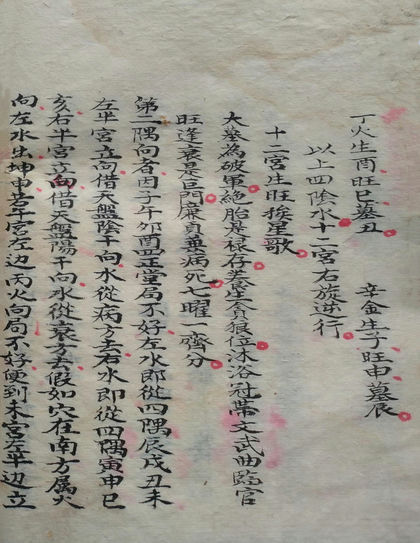 丁火生酉旺巳墓丑　辛金生子旺申墓辰
以上四陰水十二宮右旋逆行
十二宮生旺挨星歌
大墓為破軍絕胎是根存养星貪狼位沐浴冠帶文武曲臨官
旺逢衰是巨門廉貞兼病死七曜一齊分
第二隅向者因子午卯酉四堂局不好左水即從四隅辰戌丑未
左半宮立向借天盤陰干向水從病方去右水即從四隅寅申巳
亥右半宮立向借天盤陽干向水從衰方去假如穴在南方属火
向左水出坤申若午宮左边丙火向局不好便到未宮左半边立